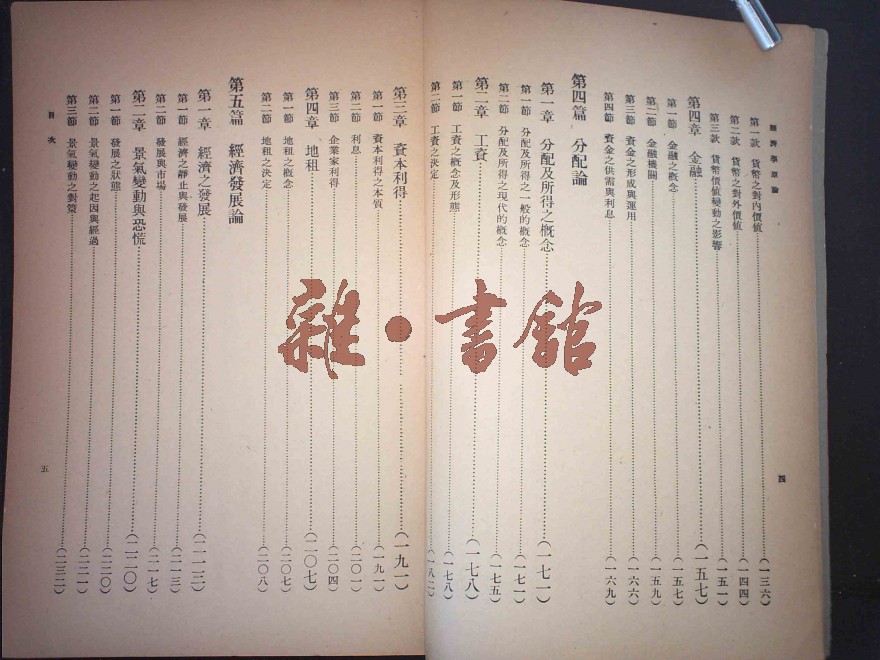 經濟學原論
四
第一款 貨幣之對內價值 (一三六)
第二款 貨幣之對外價值 (一四四)
第三款 貨幣價值變動之影響 (一五一)
第四章 金融 (一五七)
第一節 金融之概念 (一五七)
第二節 金融機關 (一五九)
第三節 資金之形成與運用 (一六六)
第四節 資金之供需與利息 (一六九)
第四篇 分配論
第一章 分配及所得之概念 (一七一)
第一節 分配及所得之一般的概念 (一七一)
第二節 分配及所得之現代的概念 (一七五)
第二章 工資 (一七八)
第一節 工資之概念及形態 (一七八)
第二節 工資之決定 (一八二)
第三章 資本利得 (一九一)
第一節 資本利得之本質 (一九一)
第二節 利息 (二〇一)
第三節 企業家利得 (二〇四)
第四章 地租 (二〇七)
第一節 地租之概念 (二〇七)
第二節 地租之決定 (二〇八)
第五篇 經濟發展論
第一章 經濟之發展 (二一三)
第一節 經濟之靜止與發展 (二一三)
第二節 發展與市場 (二一七)
第二章 景氣變動與恐慌 (二二〇)
第一節 發展之狀態 (二二〇)
第二節 景氣變動之起因與經過 (二二一)
第三節 景氣變動之對策 (二三二)
目次
五
雜·書館